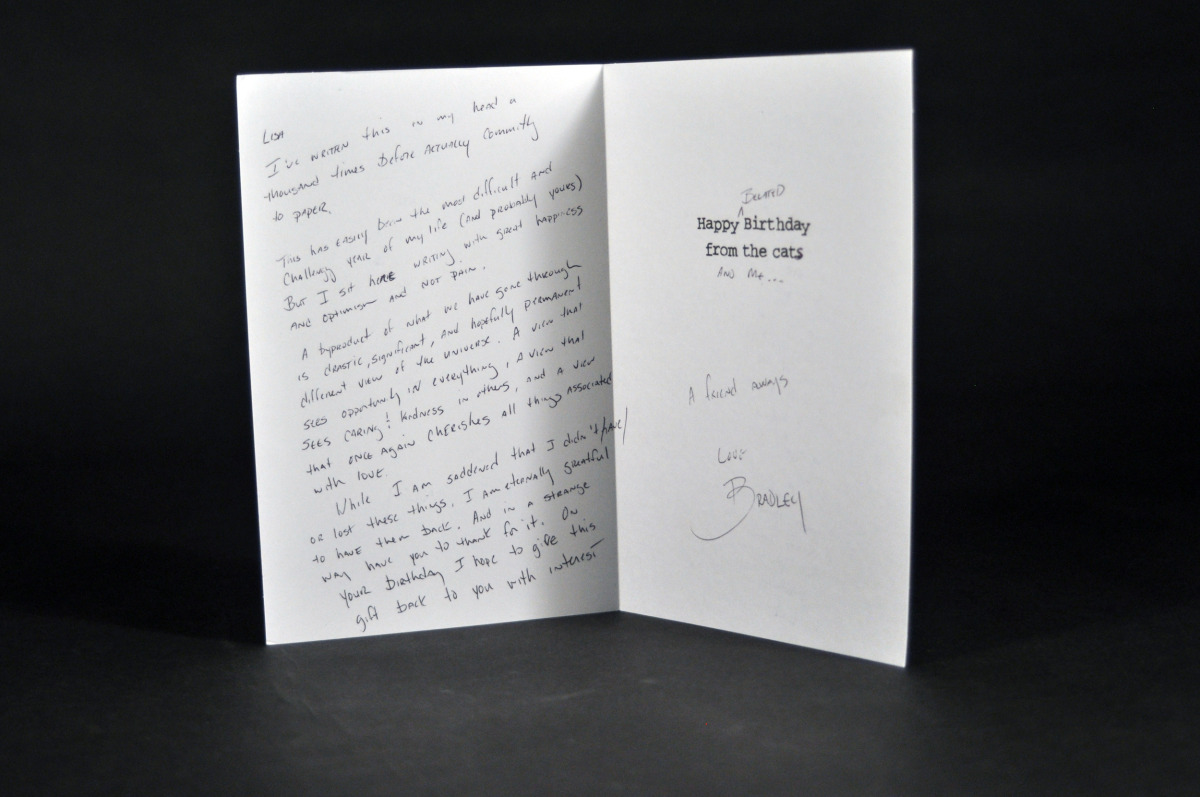 LISA
I've written this in my head a
thousand times before actually committg
to paper.
This has easily been the most difficult and
challengg year of my life (and probably yours)
But I sit here writing with great happiness
and optimism and not pain.
A byproduct of what we have gone through
is drastic, significant, and hopefully permanent
different view of the universe. A view that
sees opportunity in everything, a view that
sees caring & kindness in others, and a view
that once again cherishes all things associated
with love.
While I am saddened that I didn't /have/
or lost these things, I am eternally greatful
to have them back. And in a strange
way have you to thank for it. On
your birthday I hope to give this
gift back to you with interest
BELATED
^
Happy Birthday
from the cats
AND ME...
A friend always
Love
BRADLEY